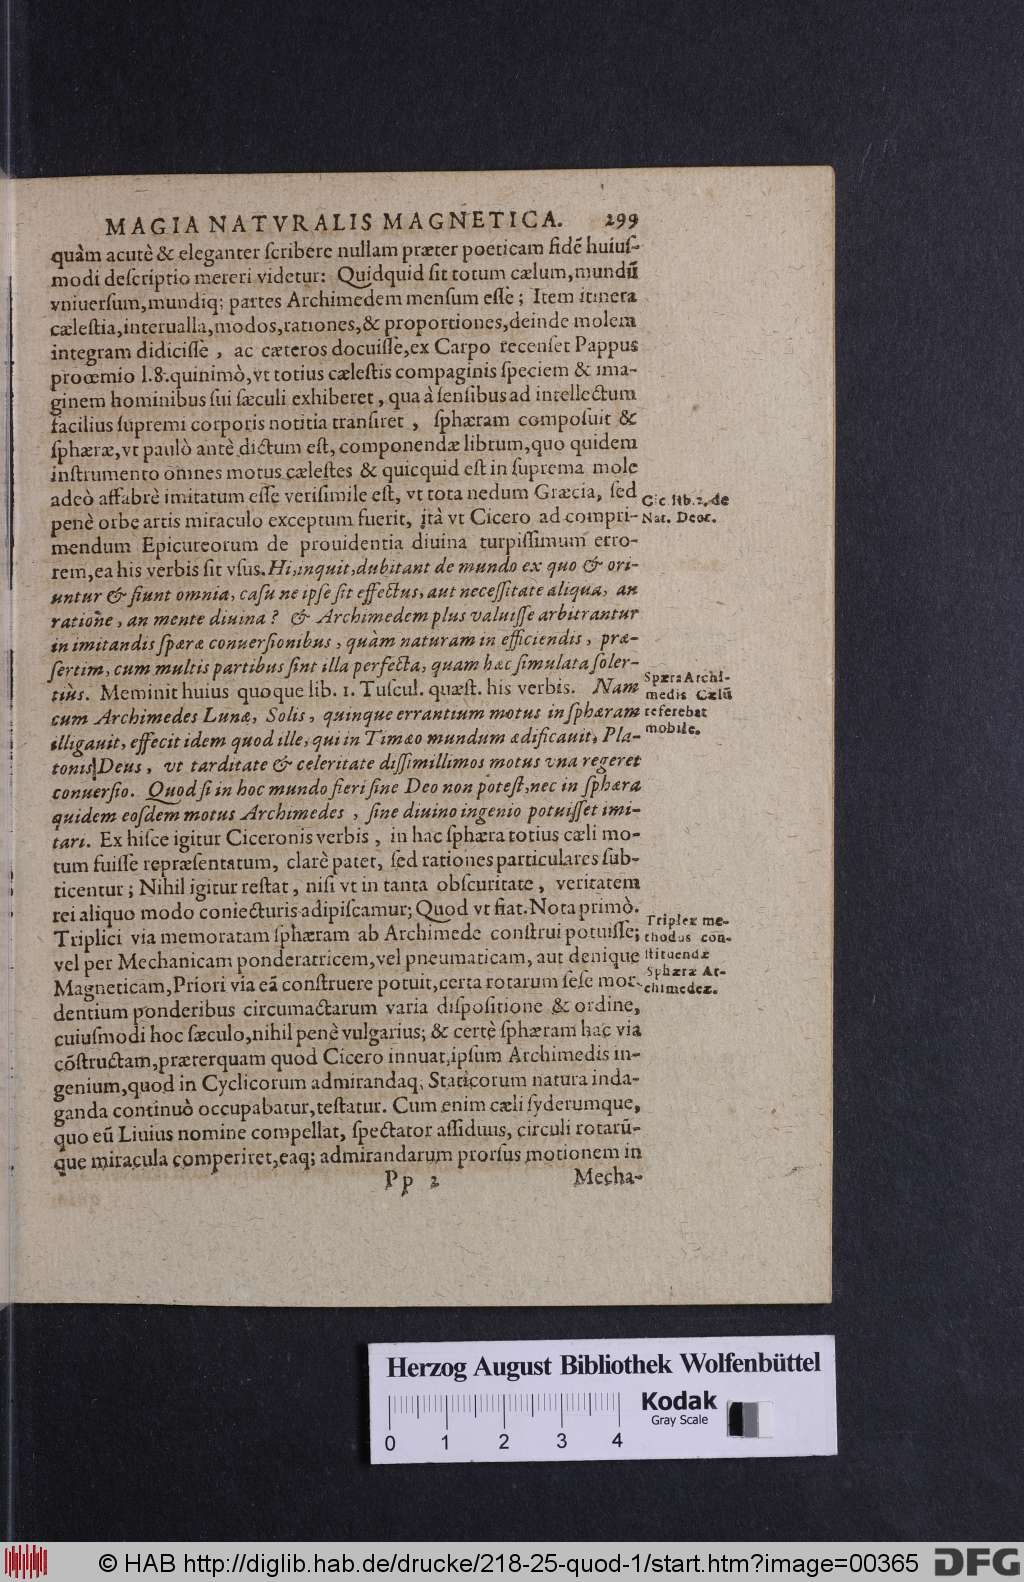 MAGIA NATVRALIS MAGNETICA. 299
quàm acutè & eleganter ſcribere nullam præter poeticam fidẽ huiuſ-
modi deſcriptio mereri videtur: Quidquid ſit totum cælum, mundũ
vniuerſum, mundiq; partes Archimedem menſum eſſe; Item itinera
cæleſtia, interualla, modos, rationes, & proportiones, deinde molem
integram didiciſſe, ac cæteros docuiſſe, ex Carpo recenſet Pappus
proœmio l.8. quinimò, vt totius cæleſtis compaginis ſpeciem & ima-
ginem hominibus ſui ſæculi exhiberet, qua à ſenſibus ad intellectum
facilius ſupremi corporis notitia tranſiret, ſphæram compoſuit &
ſphæræ, vt paulò antè dictum eſt, componendæ librum, quo quidem
inſtrumento omnes motus cæleſtes & quicquid eſt in ſuprema mole
adeò affabrè imitatum eſſe veriſimile eſt, vt tota nedum Græcia, ſed
penè orbe artis miraculo exceptum fuerit, ità vt Cicero ad compri-
mendum Epicureorum de prouidentia diuina turpiſſimum erro-
rem, ea his verbis ſit vſus. Hi, inquit, dubitant de mundo ex quo & ori-
untur & fiunt omnia, caſu ne ipſe ſit effectus, aut neceſſitate aliqua, an
ratione, an mente diuina? & Archimedem plus valuiſſe arbitrantur
in imitandis ſpæræ conuerſionibus, quàm naturam in efficiendis, præ-
ſertim, cum multis partibus ſint illa perfecta, quam hæc ſimulata ſoler-
tiùs. Meminit huius quoque lib. 1. Tuſcul. quæſt. his verbis. Nam
cum Archimedes Lunæ, Solis, quinque errantium motus in ſphæram
illigauit, effecit idem quod ille, qui in Timæo mundum ædificauit, Pla-
tonis Deus, vt tarditate & celeritate diſſimillimos motus vna regeret
conuerſio. Quod ſi in hoc mundo fieri ſine Deo non poteſt, nec in ſphæra
quidem eoſdem motus Archimedes, ſine diuino ingenio potuiſſet imi-
tari. Ex hiſce igitur Ciceronis verbis, in hac ſphæra totius cæli mo-
tum fuiſſe repræſentatum, clarè patet, ſed rationes particulares ſub-
ticentur; Nihil igitur reſtat, niſi vt in tanta obſcuritate, veritatem
rei aliquo modo coniecturis adipiſcamur; Quod vt fiat. Nota primò.
Triplici via memoratam ſphæram ab Archimede conſtrui potuiſſe;
vel per Mechanicam ponderatricem, vel pneumaticam, aut denique
Magneticam, Priori via eã conſtruere potuit, certa rotarum ſeſe mor-
dentium ponderibus circumactarum varia diſpoſitione & ordine,
cuiuſmodi hoc ſæculo, nihil penè vulgarius; & certè ſphæram hac via
cõſtructam, præterquam quod Cicero innuat, ipſum Archimedis in-
genium, quod in Cyclicorum admirandaq; Staticorum natura inda-
ganda continuò occupabatur, teſtatur. Cum enim cæli ſyderumque,
quo eũ Liuius nomine compellat, ſpectator aſſiduus, circuli rotarũ-
que miracula comperiret, eaq; admirandarum prorſus motionem in
Pp 2 Mecha-
Cic. lib. 2. de
Nat. Deor.
Spæra Archi-
medis Cælũ
referebat
mobile.
Triplex me-
thodus con-
ſtituendæ
Sphæræ Ar-
chimedeæ.
Herzog August Bibliothek Wolfenbüttel
Kodak
Gray Scale
0 1 2 3 4
© HAB http://diglib.hab.de/drucke/218-25-quod-1/start.htm?image=00365
DFG